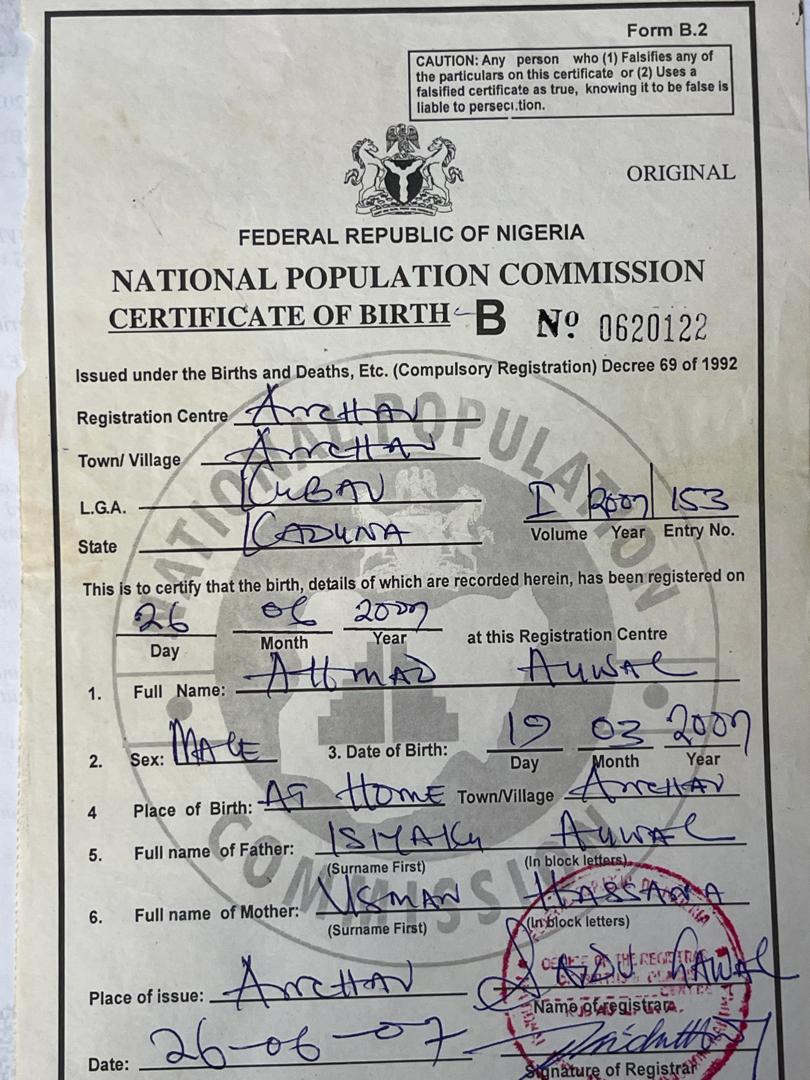 Form B.2
CAUTION: Any person who (1) Falsifies any of
the particulars on this certificate or (2) Uses a
falsified certificate as true, knowing it to be false is
liable to persecution.
ORIGINAL
FEDERAL REPUBLIC OF NIGERIA
NATIONAL POPULATION COMMISSION
CERTIFICATE OF BIRTH B Nº 0620122
Issued under the Births and Deaths, Etc. (Compulsory Registration) Decree 69 of 1992
Registration Centre ANCHAU
Town/ Village ANCHAU
L.G.A. KUBAU
State KADUNA
I 2007 153
Volume Year Entry No.
This is to certify that the birth, details of which are recorded herein, has been registered on
26 06 2007
Day Month Year at this Registration Centre
1. Full Name: AHMAD AUWAL
2. Sex: MALE 3. Date of Birth: 19 03 2007
Day Month Year
4 Place of Birth: AT HOME Town/Village ANCHAU
5. Full name of Father: ISHAKU AUWAL
(Surname First) (In block letters)
6. Full name of Mother: USMAN HASSANA
(Surname First) (In block letters)
Place of issue: ANCHAU LAWAL
Name of registrar
Date: 26-06-07
Signature of Registrar
NATIONAL POPULATION
COMMISSION
OFFICE OF THE REGISTRAR